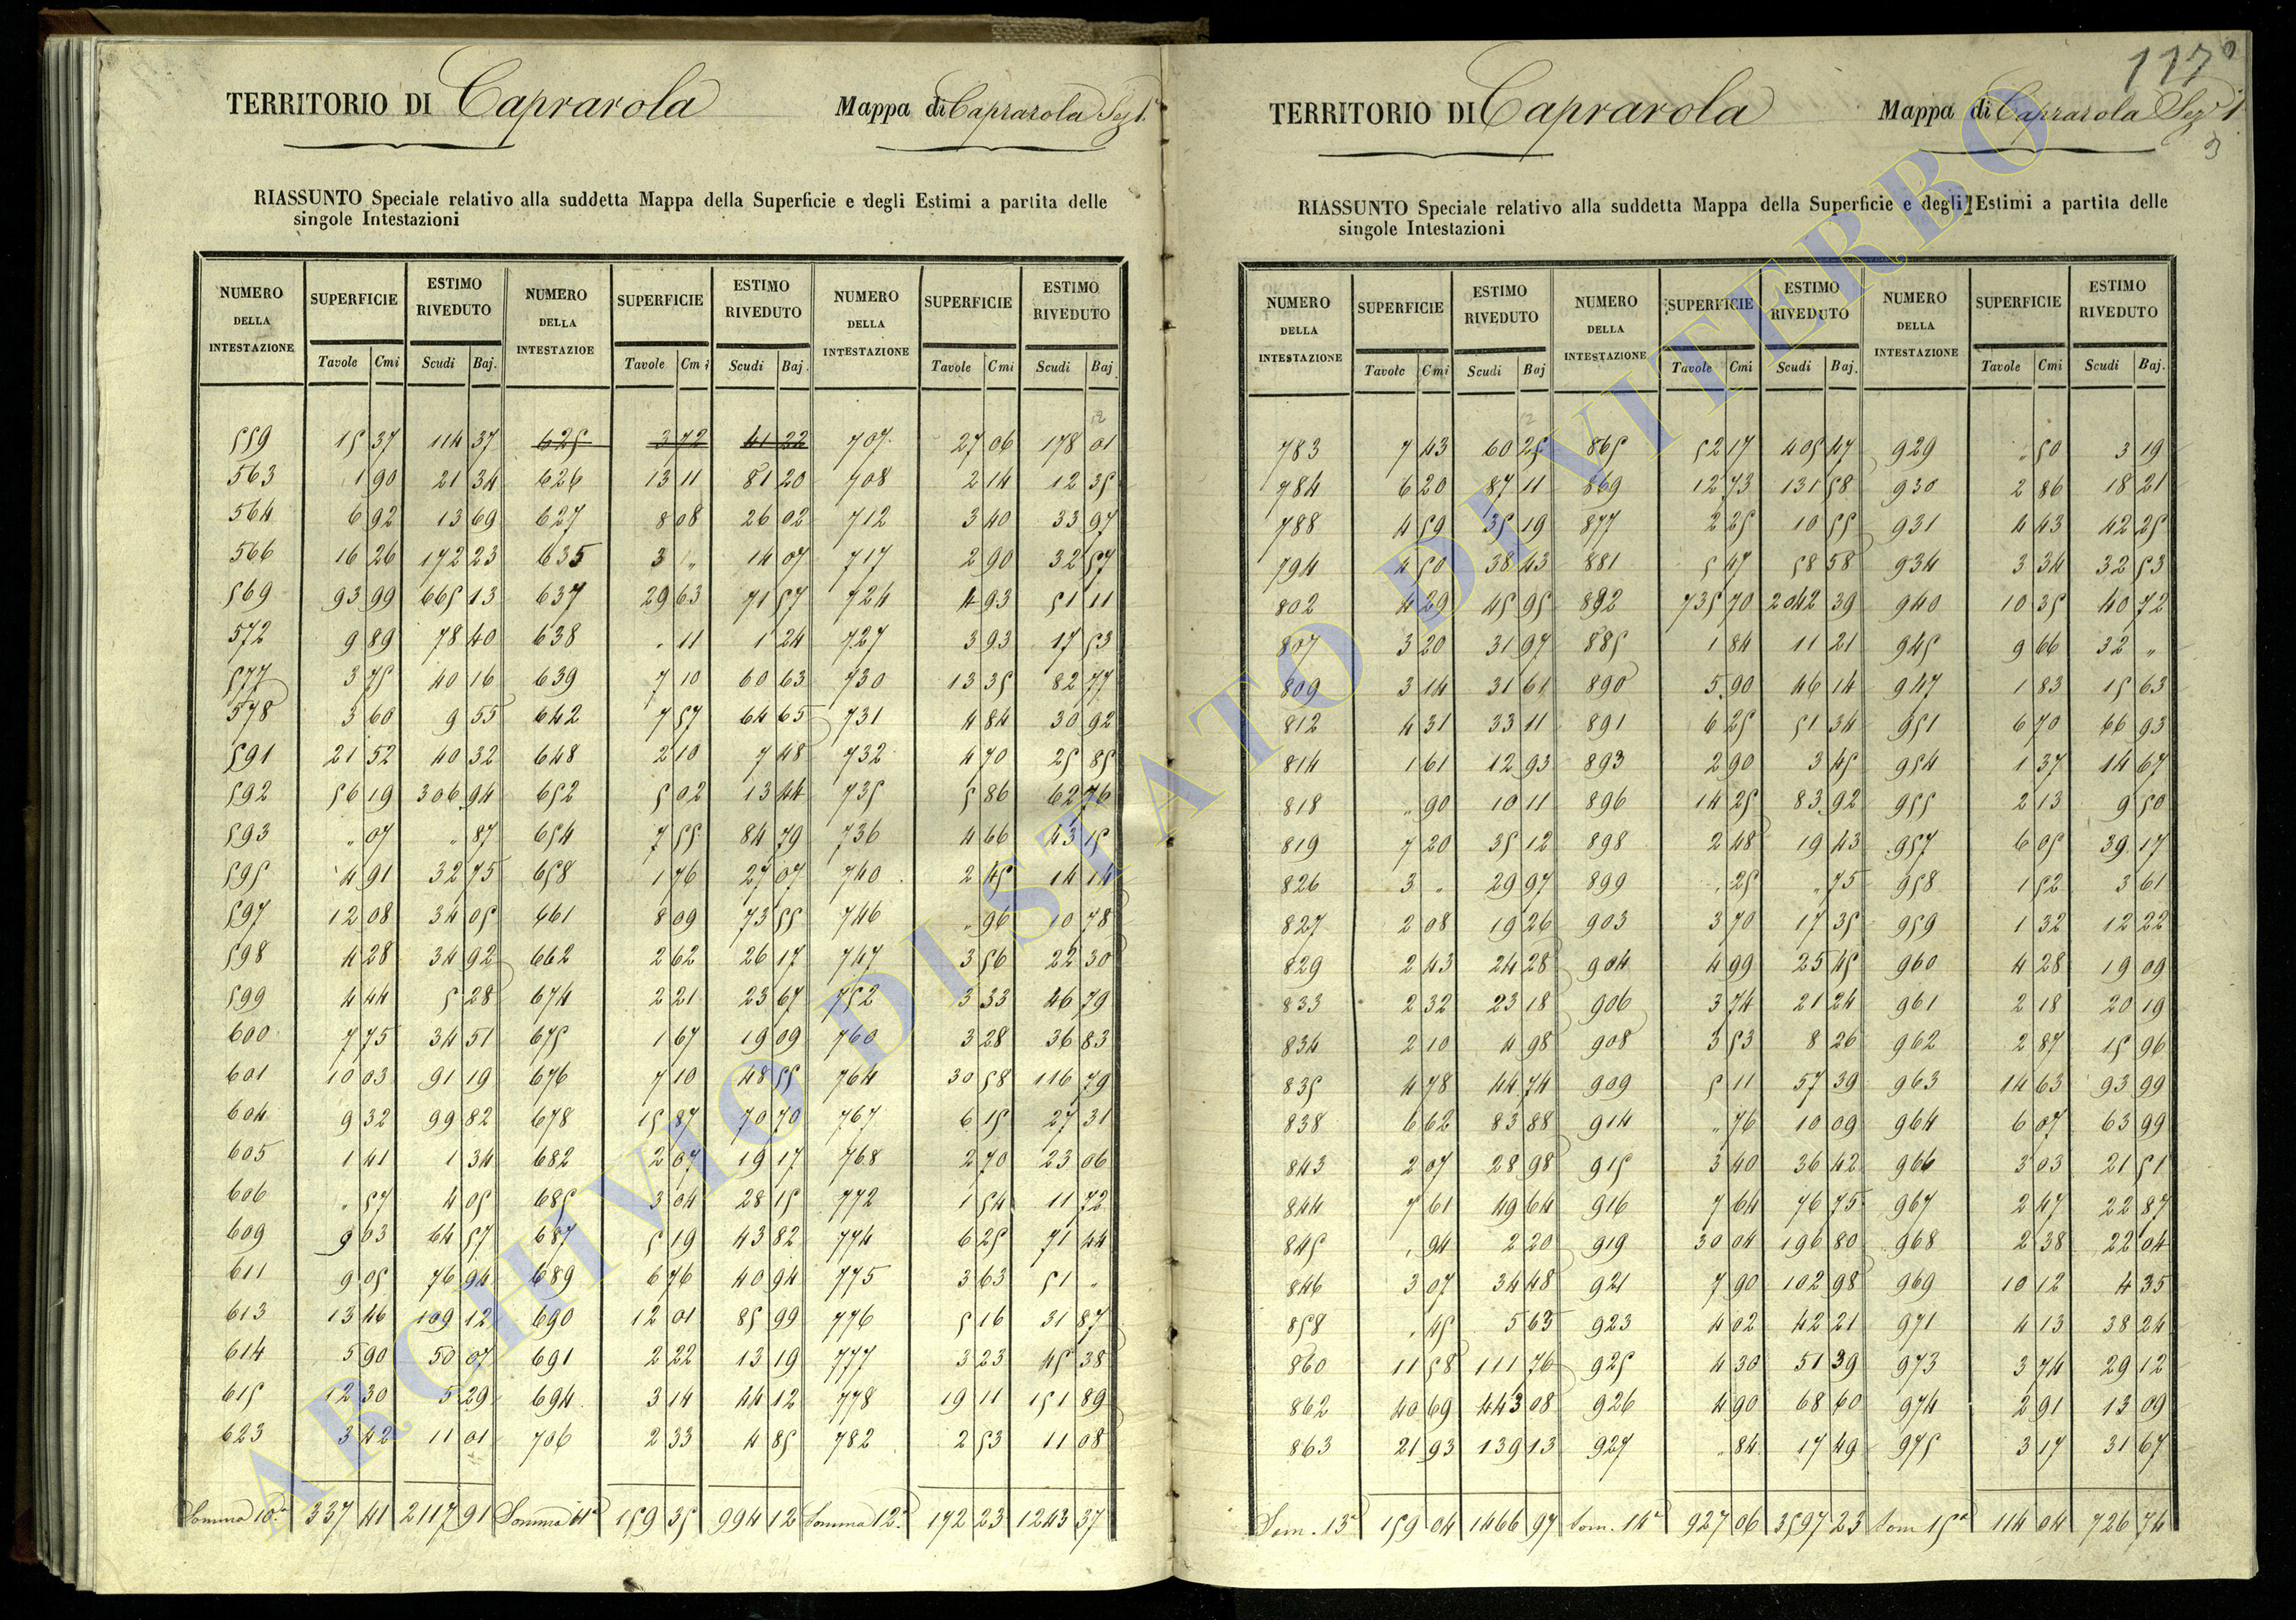 TERRITORIO DI Caprarola Mappa di Caprarola Sez 1.
RIASSUNTO Speciale relativo alla suddetta Mappa della Superficie e degli Estimi a partita delle
singole Intestazioni
NUMERO DELLA INTESTAZIONE SUPERFICIE ESTIMO RIVEDUTO NUMERO DELLA INTESTAZIOE SUPERFICIE ESTIMO RIVEDUTO NUMERO DELLA INTESTAZIONE SUPERFICIE ESTIMO RIVEDUTO
Tavole Cmi Scudi Baj. Tavole Cmi Scudi Baj. Tavole Cmi Scudi Baj.
559 15 37 114 37 625 3 72 41 22 707 27 06 178 01
563 1 90 21 34 626 13 11 81 20 708 2 14 12 35
564 6 92 13 69 627 8 08 26 02 712 3 40 33 97
566 16 26 172 23 635 3 „ 14 07 717 2 90 32 57
569 93 99 665 13 637 29 63 71 57 724 4 93 51 11
572 9 89 78 40 638 „ 11 1 24 727 3 93 17 53
577 3 75 40 16 639 7 10 60 63 730 13 35 82 77
578 3 60 9 55 642 7 57 64 65 731 4 84 30 92
591 21 52 40 32 648 2 10 7 48 732 4 70 25 85
592 56 19 306 94 652 5 02 13 44 735 5 86 62 76
593 „ 07 „ 87 654 7 55 84 79 736 4 66 43 15
595 4 91 32 75 658 1 76 27 07 740 2 45 14 14
597 12 08 34 05 661 8 09 73 55 746 „ 96 10 78
598 4 28 34 92 662 2 62 26 17 747 3 56 22 30
599 4 44 5 28 674 2 21 23 67 752 3 33 46 79
600 7 75 34 51 675 1 67 19 09 760 3 28 36 83
601 10 03 91 19 676 7 10 48 55 764 30 58 116 79
604 9 32 99 82 678 15 87 70 70 767 6 15 27 31
605 1 41 1 34 682 2 07 19 17 768 2 70 23 06
606 „ 57 4 05 685 3 04 28 15 772 1 54 11 72
609 9 63 64 57 687 5 19 43 82 774 6 25 71 44
611 9 05 76 94 689 6 76 40 94 775 3 63 51 „
613 13 46 109 12 690 12 01 85 99 776 5 16 31 87
614 5 90 50 07 691 2 22 13 19 777 3 23 45 38
615 12 30 5 29 694 3 14 44 12 778 19 11 151 89
623 3 42 11 01 706 2 33 4 85 782 2 53 11 08
Somma 10ª 337 41 2117 91 Somma 11ª 159 35 994 12 Somma 12ª 172 23 1243 37
117
TERRITORIO DI Caprarola Mappa di Caprarola Sez 1
3
RIASSUNTO Speciale relativo alla suddetta Mappa della Superficie e degli Estimi a partita delle
singole Intestazioni
NUMERO DELLA INTESTAZIONE SUPERFICIE ESTIMO RIVEDUTO NUMERO DELLA INTESTAZIONE SUPERFICIE ESTIMO RIVEDUTO NUMERO DELLA INTESTAZIONE SUPERFICIE ESTIMO RIVEDUTO
Tavole Cmi Scudi Baj Tavole Cmi Scudi Baj. Tavole Cmi Scudi Baj.
783 7 43 60 25 865 52 17 405 47 929 „ 50 3 19
784 6 20 87 11 869 12 73 131 58 930 2 86 18 21
788 4 59 35 19 877 2 25 10 55 931 4 43 42 25
794 4 50 38 43 881 5 47 58 58 934 3 34 32 53
802 4 29 45 95 882 735 70 2042 39 940 10 35 40 72
807 3 20 31 97 885 1 84 11 21 945 9 66 32 „
809 3 14 31 61 890 5 90 46 14 947 1 83 15 63
812 4 31 33 11 891 6 25 51 34 951 6 70 66 93
814 1 61 12 93 893 2 90 3 45 954 1 37 14 67
818 „ 90 10 11 896 14 25 83 92 955 2 13 9 50
819 7 20 35 12 898 2 48 19 43 957 6 05 39 17
826 3 „ 29 97 899 „ 25 „ 75 958 1 52 3 61
827 2 08 19 26 903 3 70 17 35 959 1 32 12 22
829 2 43 24 28 904 4 99 25 45 960 4 28 19 09
833 2 32 23 18 906 3 74 21 24 961 2 18 20 19
834 2 10 4 98 908 3 53 8 26 962 2 87 15 96
835 4 78 44 74 909 5 11 57 39 963 14 63 93 99
838 6 62 83 88 914 „ 76 10 09 964 6 07 63 99
843 2 07 28 98 915 3 40 36 42 966 3 03 21 51
844 7 61 49 64 916 7 64 76 75 967 2 47 22 87
845 „ 94 2 20 919 30 04 196 80 968 2 38 22 04
846 3 07 34 48 921 7 90 102 98 969 10 12 4 35
858 „ 45 5 63 923 4 02 42 21 971 4 13 38 24
860 11 58 111 76 925 4 30 51 39 973 3 74 29 12
862 40 69 443 08 926 4 90 68 60 974 2 91 13 09
863 21 93 139 13 927 „ 84 17 49 975 3 17 31 67
Som. 13ª 159 04 1466 97 Som. 14ª 927 06 3597 23 Som 15ª 114 04 726 74
ARCHIVIO DI STATO DI VITERBO